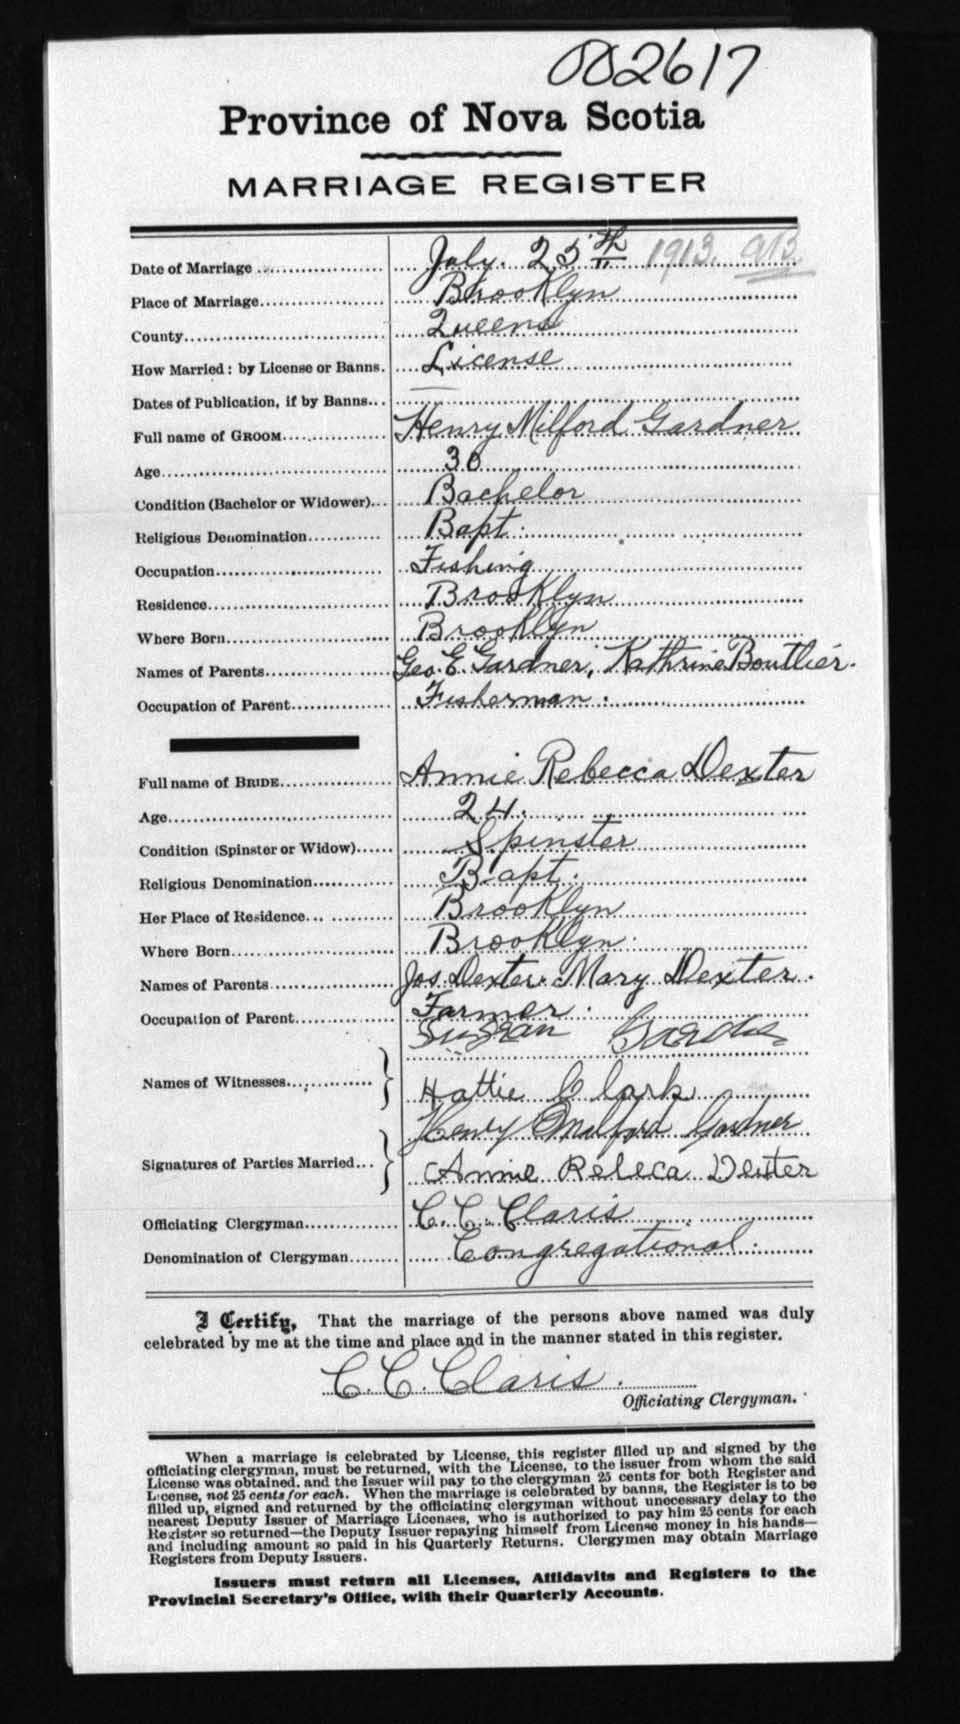 002617
Province of Nova Scotia
MARRIAGE REGISTER
Date of Marriage July. 25th 1913.
Place of Marriage Brooklyn
County Queens
How Married: by License or Banns. License
Dates of Publication, if by Banns —
Full name of GROOM Henry Milford Gardner
Age 30
Condition (Bachelor or Widower) Bachelor
Religious Denomination Bapt.
Occupation Fishing
Residence Brooklyn
Where Born Brooklyn
Names of Parents Geo. E. Gardner, Kathrine Boutlier.
Occupation of Parent Fisherman.
Full name of BRIDE Annie Rebecca Dexter
Age 24.
Condition (Spinster or Widow) Spinster
Religious Denomination Bapt.
Her Place of Residence Brooklyn
Where Born Brooklyn.
Names of Parents Jos. Dexter. Mary Dexter.
Occupation of Parent Farmer.
Names of Witnesses
Hattie Clark
Henry Milford Gardner
Signatures of Parties Married
Annie Rebeca Dexter
Officiating Clergyman C. C. Claris
Denomination of Clergyman Congregational.
I Certify, That the marriage of the persons above named was duly
celebrated by me at the time and place and in the manner stated in this register.
C. C. Claris.
Officiating Clergyman.
When a marriage is celebrated by License, this register filled up and signed by the
officiating clergyman, must be returned, with the License, to the issuer from whom the said
License was obtained, and the Issuer will pay to the clergyman 25 cents for both Register and
License, not 25 cents for each. When the marriage is celebrated by banns, the Register is to be
filled up, signed and returned by the officiating clergyman without unnecessary delay to the
nearest Deputy Issuer of Marriage Licenses, who is authorized to pay him 25 cents for each
Register so returned—the Deputy Issuer repaying himself from License money in his hands—
and including amount so paid in his Quarterly Returns. Clergymen may obtain Marriage
Registers from Deputy Issuers.
Issuers must return all Licenses, Affidavits and Registers to the
Provincial Secretary's Office, with their Quarterly Accounts.